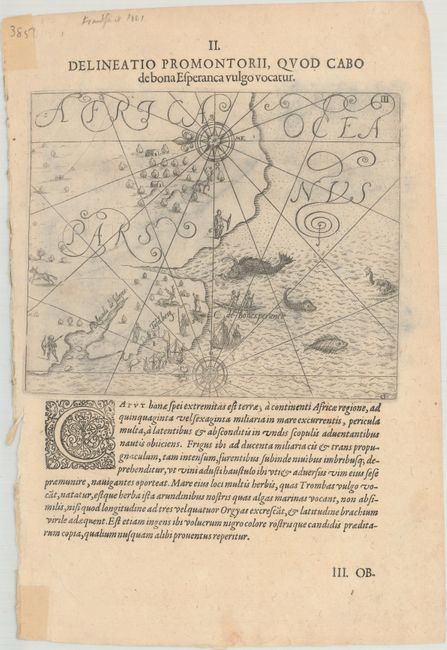 3851
Frankfurt 1601
II.
DELINEATIO PROMONTORII, QVOD CABO
de bona Esperanca vulgo vocatur.
III
AFRICAE
OCEA
NVS
PARS
C. de bone esperance
CAPVT bonæ spei extremitas est terræ, à continenti Africæ regione, ad
quinquaginta vel sexaginta miliaria in mare excurrentis, pericula
multa, à latentibus & absconditis in vndis scopulis aduentantibus
nautis obuiciens. Frigus ibi ad ducenta miliaria cis & trans propu-
gnaculum, tam intensum, furentibus subinde niuibus imbribusq; de-
prehenditur, vt vini adusti haustulo ibi vti & aduersus vim eius sese
præmunire, nauigantes oporteat. Mare eius loci multis herbis, quas Trombas vulgo vo-
cāt, natatur, estque herba ista arundinibus nostris quas algas marinas vocant, non absi-
milis, nisi quod longitudine ad tres vel quatuor Orgyas excrescāt, & latitudine brachium
virile adæquent. Est etiam ingens ibi volucrum nigro colore rostrisque candidis prædita-
rum copia, qualium nusquam alibi prouentus reperitur.
III. OB-